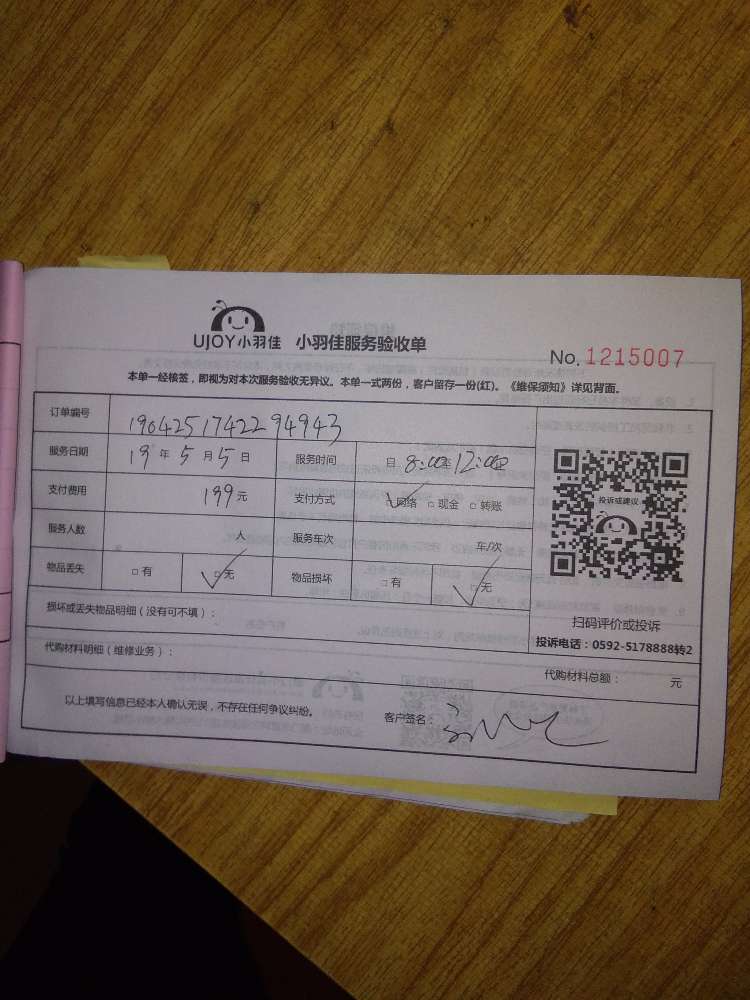 UJOY小羽佳 小羽佳服务验收单
No. 1215007
本单一经核签，即视为对本次服务验收无异议。本单一式两份，客户留存一份(红)。《维保须知》详见背面。
订单编号 190425174229 4943
服务日期 19 年 5 月 5 日 服务时间 自 8:00至12:00止
支付费用 199元 支付方式 ☑网络 □现金 □转账
服务人数 人 服务车次 车/次
物品丢失 □有 ☑无 物品损坏 □有 ☑无
投诉或建议
扫码评价或投诉
投诉电话：0592-5178888转2
损坏或丢失物品明细（没有可不填）：
代购材料明细（维修业务）：
代购材料总额： 元
以上填写信息已经本人确认无误，不存在任何争议纠纷。 客户签名：